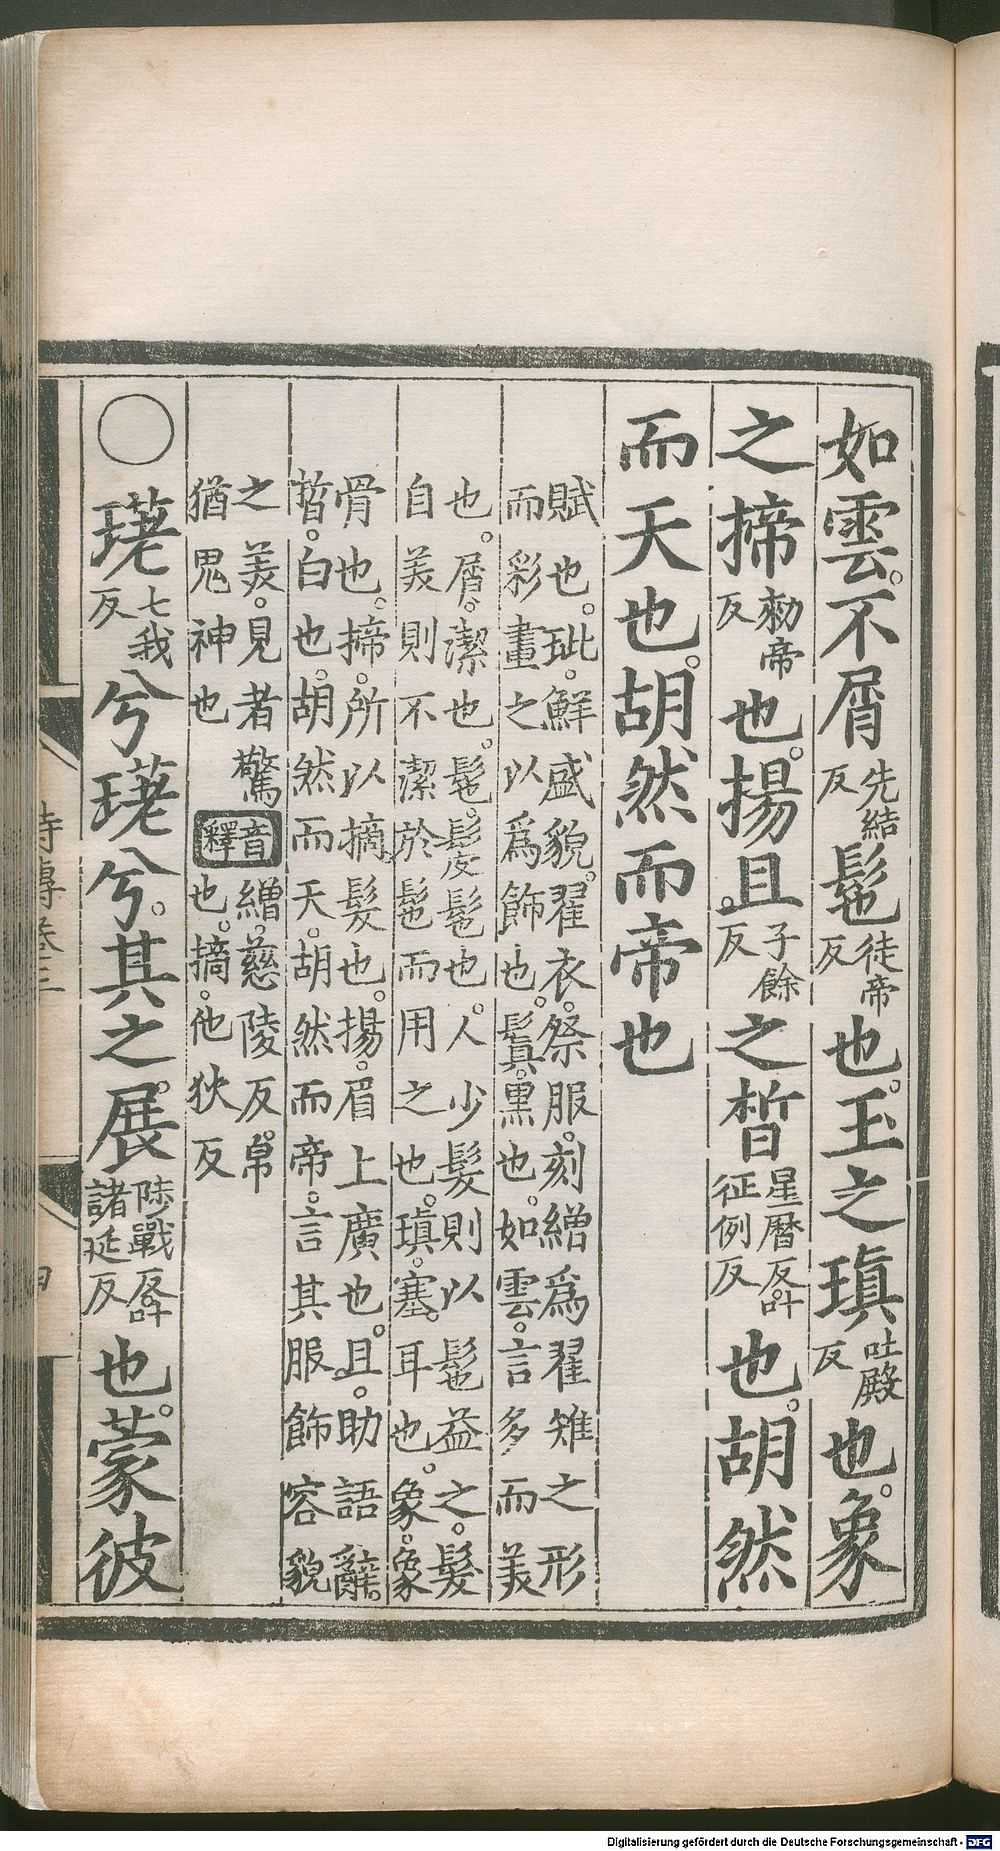 如雲。不屑先結反髢徒帝反也。玉之瑱吐殿反也。象
之揥勑帝反也。揚且子餘反之皙星曆反叶征例反也。胡然
而天也。胡然而帝也
賦也。玼。鮮盛貌。翟衣。祭服。刻繒爲翟雉之形
而彩畫之以爲飾也。鬒。黑也。如雲。言多而美
也。屑。潔也。髢。髲髢也。人少髮則以髢益之。髮
自美則不潔於髢而用之也。瑱。塞耳也。象。象
骨也。揥。所以摘髮也。揚。眉上廣也。且。助語辭。
晳。白也。胡然而天。胡然而帝。言其服飾容貌
之美。見者驚
猶鬼神也
音釋
繒。慈陵反。帛
也。摘。他狄反
○瑳七我反兮瑳兮。其之展。陟戰反叶諸延反也。蒙彼
詩傳卷三
Digitalisierung gefördert durch die Deutsche Forschungsgemeinschaft - DFG